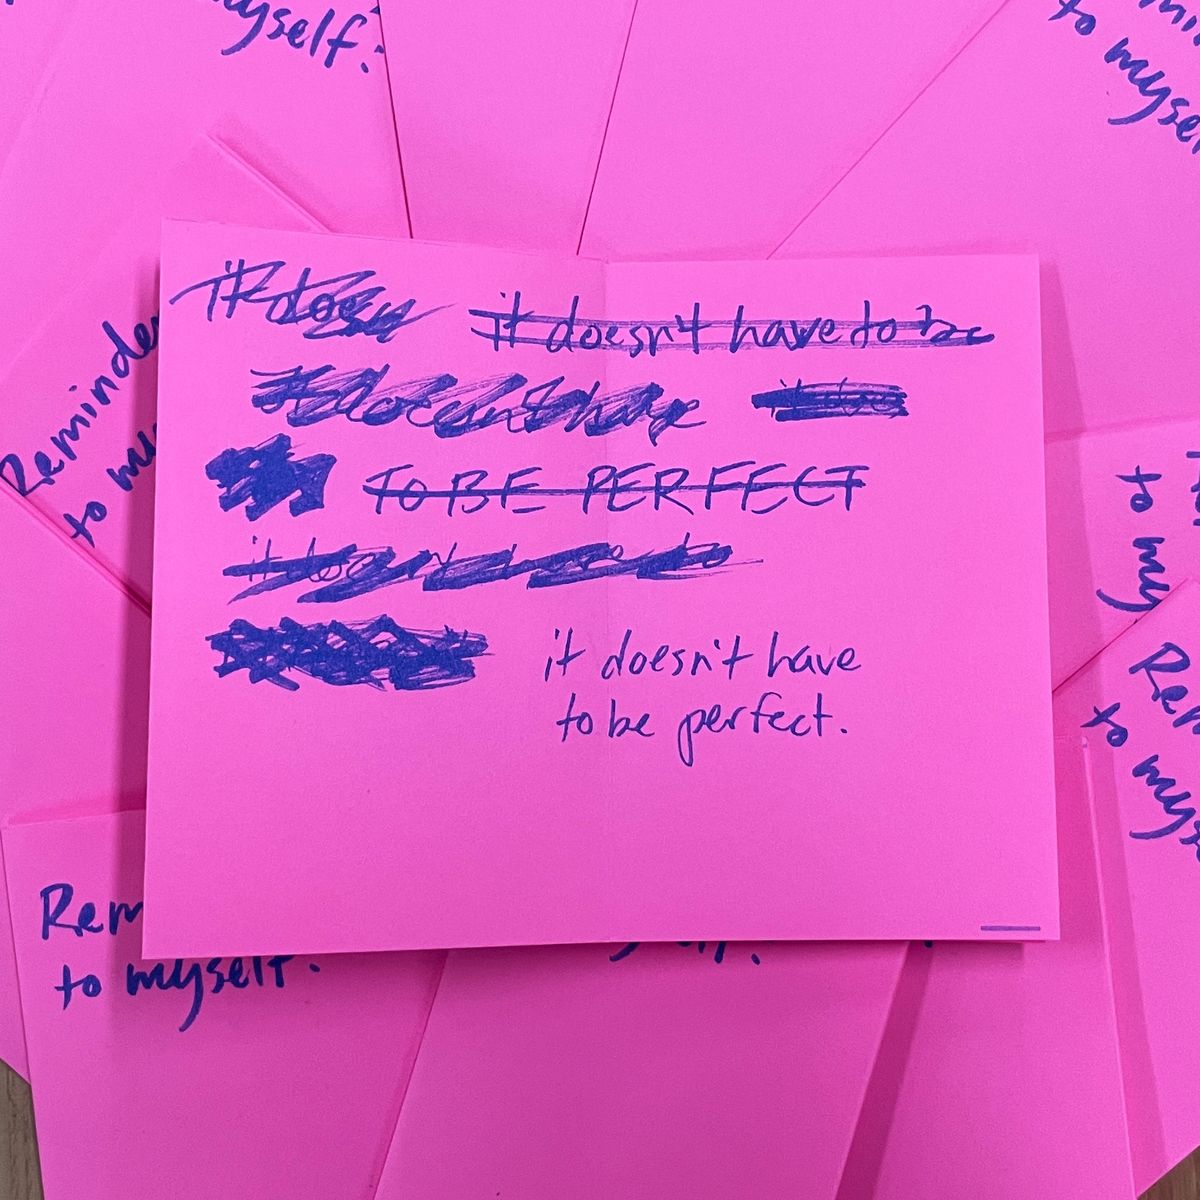 myself:
to myself
Reminder
to my
it does
it doesn't have to be
it doesn't have
TO BE PERFECT
it doesn't have to
it doesn't have
to be perfect.
to my
Rem
to mys
Rem
to myself: